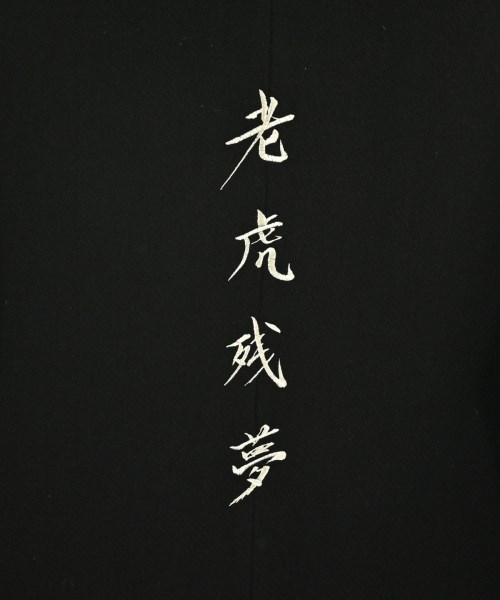 老虎残夢